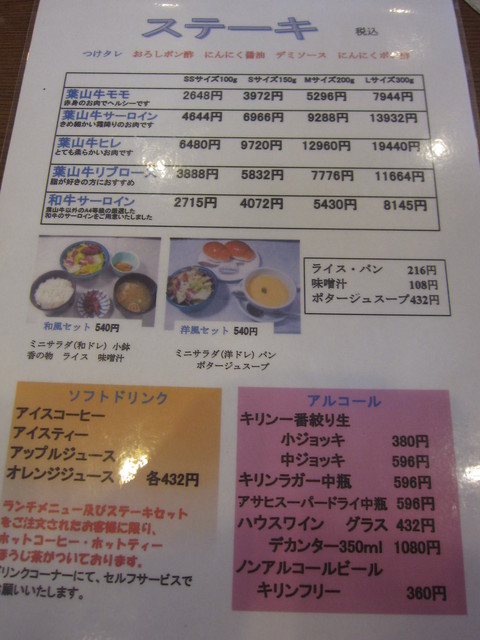 ステーキ 税込
つけタレ おろしポン酢 にんにく醤油 デミソース にんにくポン酢
SSサイズ100g Sサイズ150g Mサイズ200g Lサイズ300g
葉山牛モモ 2648円 3972円 5296円 7944円
赤身のお肉でヘルシーです
葉山牛サーロイン 4644円 6966円 9288円 13932円
きめ細かい霜降りのお肉です
葉山牛ヒレ 6480円 9720円 12960円 19440円
とても柔らかいお肉です
葉山牛リブロース 3888円 5832円 7776円 11664円
脂が好きの方におすすめ
和牛サーロイン 2715円 4072円 5430円 8145円
葉山牛以外のA4等級の厳選した
和牛のサーロインをご用意いたしました
ライス・パン 216円
味噌汁 108円
ポタージュスープ432円
和風セット 540円
ミニサラダ(和ドレ) 小鉢
香の物 ライス 味噌汁
洋風セット 540円
ミニサラダ(洋ドレ) パン
ポタージュスープ
ソフトドリンク
アイスコーヒー
アイスティー
アップルジュース
オレンジジュース 各432円
ランチメニュー及びステーキセット
をご注文されたお客様に限り、
ホットコーヒー・ホットティー
ほうじ茶がついております。
ドリンクコーナーにて、セルフサービスで
お願いいたします。
アルコール
キリン一番絞り生
小ジョッキ 380円
中ジョッキ 596円
キリンラガー中瓶 596円
アサヒスーパードライ中瓶 596円
ハウスワイン グラス 432円
デカンター350ml 1080円
ノンアルコールビール
キリンフリー 360円